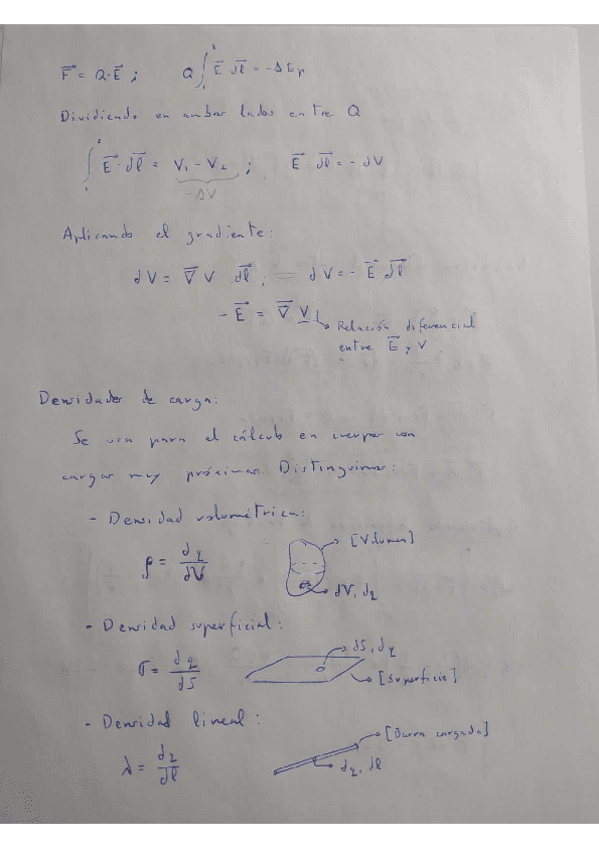 F⃗ = Q·E⃗ ; Q ∫₁² E⃗ dl⃗ = -ΔEp
Dividiendo en ambos lados entre Q
∫₁² E⃗ · dl⃗ = V₁ - V₂ ; E⃗ dl⃗ = - dV
-ΔV
Aplicando el gradiente:
dV = ∇⃗ V dl⃗ ; dV = - E⃗ dl⃗
- E⃗ = ∇⃗ V → Relación diferencial
entre E⃗ y V
Densidades de carga:
Se usa para el cálculo en cuerpos con
cargas muy próximas. Distinguimos:
- Densidad volumétrica:
ρ = dq/dV → [Volumen]
→ dV, dq
- Densidad superficial:
→ dS, dq
σ = dq/dS → [Superficie]
- Densidad lineal:
→ [Barra cargada]
λ = dq/dl → dq, dl